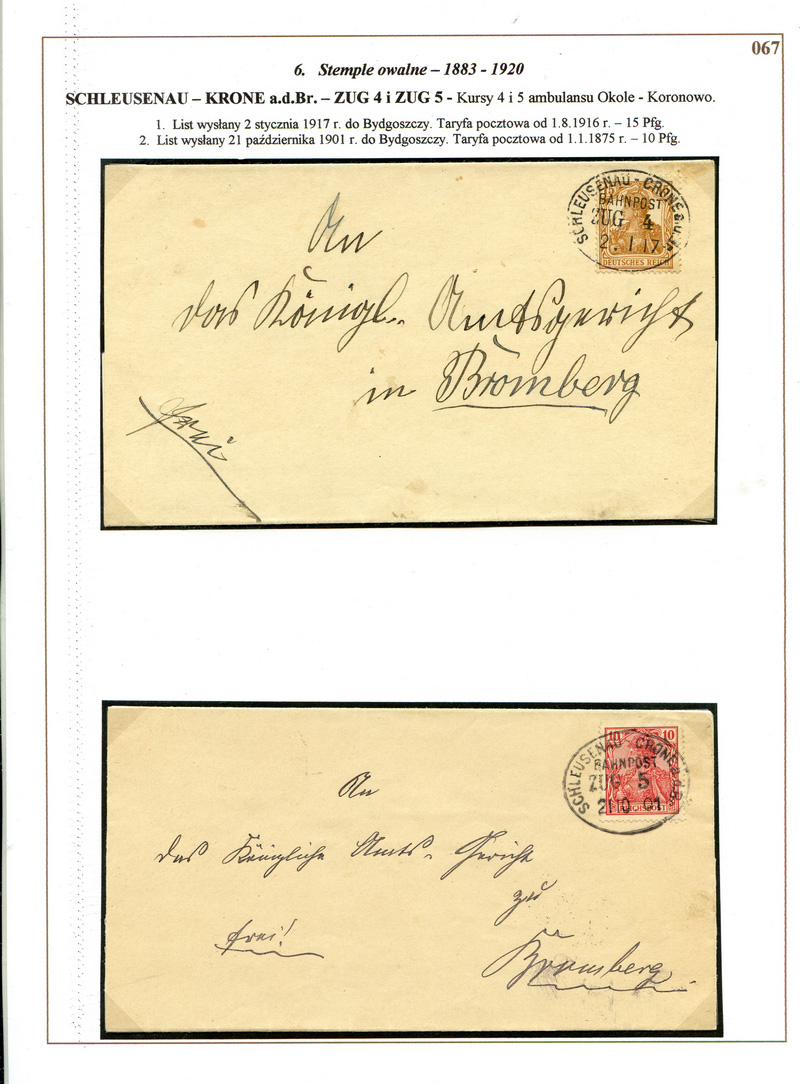 067
6. Stemple owalne – 1883 - 1920
SCHLEUSENAU – KRONE a.d.Br. – ZUG 4 i ZUG 5 - Kursy 4 i 5 ambulansu Okole - Koronowo.
1. List wysłany 2 stycznia 1917 r. do Bydgoszczy. Taryfa pocztowa od 1.8.1916 r. – 15 Pfg.
2. List wysłany 21 października 1901 r. do Bydgoszczy. Taryfa pocztowa od 1.1.1875 r. – 10 Pfg.
SCHLEUSENAU - CRONE a.d.
BAHNPOST
ZUG 4
2. 1 17
DEUTSCHES REICH
An
das Königl. Amtsgericht
in Bromberg
frei
10 10
SCHLEUSENAU - CRONE a.d.B.
BAHNPOST
ZUG 5
21 10 01
REICHSPOST
An
das Königliche Amts-Gericht
zu
frei!
Bromberg